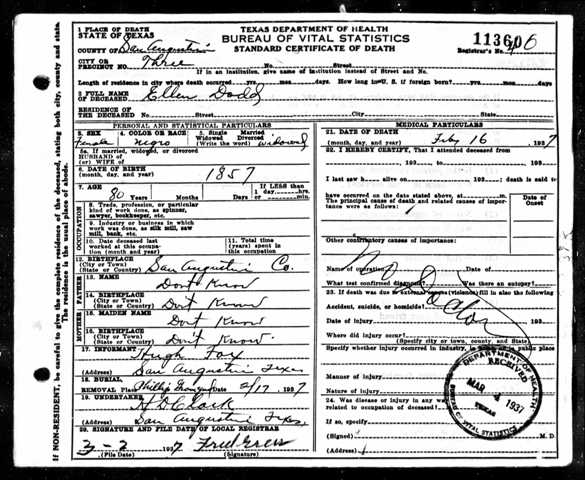 TEXAS DEPARTMENT OF HEALTH
BUREAU OF VITAL STATISTICS
STANDARD CERTIFICATE OF DEATH
113606
Registrar's No. 6
1 PLACE OF DEATH
STATE OF TEXAS
COUNTY OF San Augustine
CITY OR PRECINCT NO. Three No. Street
If in an institution, give name of institution instead of Street and No.
Length of residence in city where death occurred yrs. mos. days. How long in U. S. if foreign born? yrs. mos. days
2 FULL NAME OF DECEASED Ellen Dodd
RESIDENCE OF THE DECEASED No. Street City State
PERSONAL AND STATISTICAL PARTICULARS
3. SEX Female
4. COLOR OR RACE negro
5. Single Married Widowed Divorced (Write the word) widowed
5a. If married, widowed, or divorced
HUSBAND of
(or) WIFE of
6. DATE OF BIRTH (month, day, and year) 1857
7. AGE 80 Years Months Days If LESS than 1 day, hrs. or min.
OCCUPATION
8. Trade, profession, or particular kind of work done, as spinner, sawyer, bookkeeper, etc.
9. Industry or business in which work was done, as silk mill, saw mill, bank, etc.
10. Date deceased last worked at this occupation (month and year)
11. Total time (years) spent in this occupation
12. BIRTHPLACE (City or Town) (State or Country) San Augustine Co.
FATHER
13. NAME Dont Know
14. BIRTHPLACE (City or Town) (State or Country) Don't Know
MOTHER
15. MAIDEN NAME Dont Know
16. BIRTHPLACE (City or Town) (State or Country) Don't Know
17. INFORMANT Hugh Fox
(Address) San Augustine Texas
18. BURIAL, REMOVAL Place 2/17 1937
19. UNDERTAKER H D Clark
(Address) San Augustine Texas
20. SIGNATURE AND FILE DATE OF LOCAL REGISTRAR
3-2 1937
(File Date)
MEDICAL PARTICULARS
21. DATE OF DEATH (month, day, and year) Feby 16 1937
22. I HEREBY CERTIFY, That I attended deceased from
193 , to 193
I last saw h alive on 193 ; death is said to
have occurred on the date stated above, at m.
The principal cause of death and related causes of importance were as follows:
Date of Onset
Other contributory causes of importance:
no Doctor
Name of operation Date of
What test confirmed diagnosis? Was there an autopsy?
23. If death was due to external causes (violence) fill in also the following
Accident, suicide, or homicide?
Date of injury 193
Where did injury occur?
(Specify city or town, county, and State)
Specify whether injury occurred in industry, in home, or in public place
Manner of injury
Nature of injury
24. Was disease or injury in any way related to occupation of deceased?
If so, specify
(Signed) M. D.
(Address)
DEPARTMENT OF HEALTH
RECEIVED
MAR 1937
TEXAS
BUREAU OF VITAL STATISTICS
IF NON-RESIDENT, be careful to give the complete residence of the deceased, stating both city, county and state. The residence is the usual place of abode.